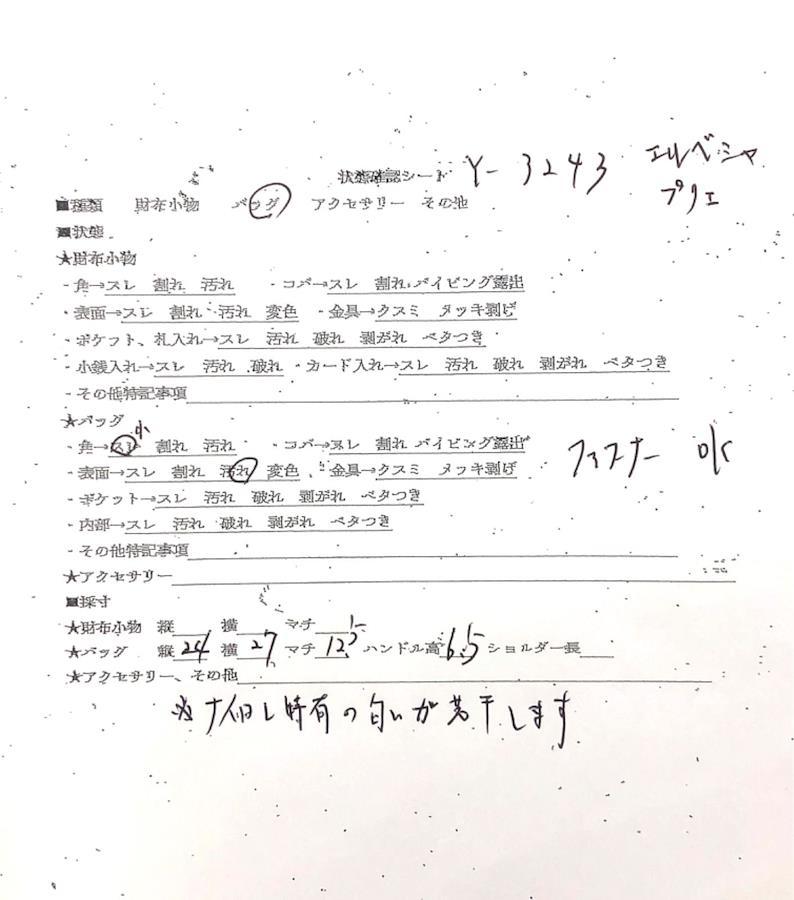 状態確認シート Y-3243 エルベシャプリエ
■種類 財布小物 バッグ アクセサリー その他
■状態
★財布小物
・角→スレ 割れ 汚れ ・コバ→スレ 割れ パイピング露出
・表面→スレ 割れ 汚れ 変色 ・金具→クスミ メッキ剥げ
・ポケット、札入れ→スレ 汚れ 破れ 剥がれ ベタつき
・小銭入れ→スレ 汚れ 破れ ・カード入れ→スレ 汚れ 破れ 剥がれ ベタつき
・その他特記事項
★バッグ
・角→スレ小 割れ 汚れ ・コバ→スレ 割れ パイピング露出
・表面→スレ 割れ 汚れ 変色 ・金具→クスミ メッキ剥げ ファスナー ok
・ポケット→スレ 汚れ 破れ 剥がれ ベタつき
・内部→スレ 汚れ 破れ 剥がれ ベタつき
・その他特記事項
★アクセサリー
■採寸
★財布小物 縦 横 マチ
★バッグ 縦 24 横 27 マチ 12.5 ハンドル高 6.5 ショルダー長
★アクセサリー、その他
※ナイロン特有の匂いが若干します